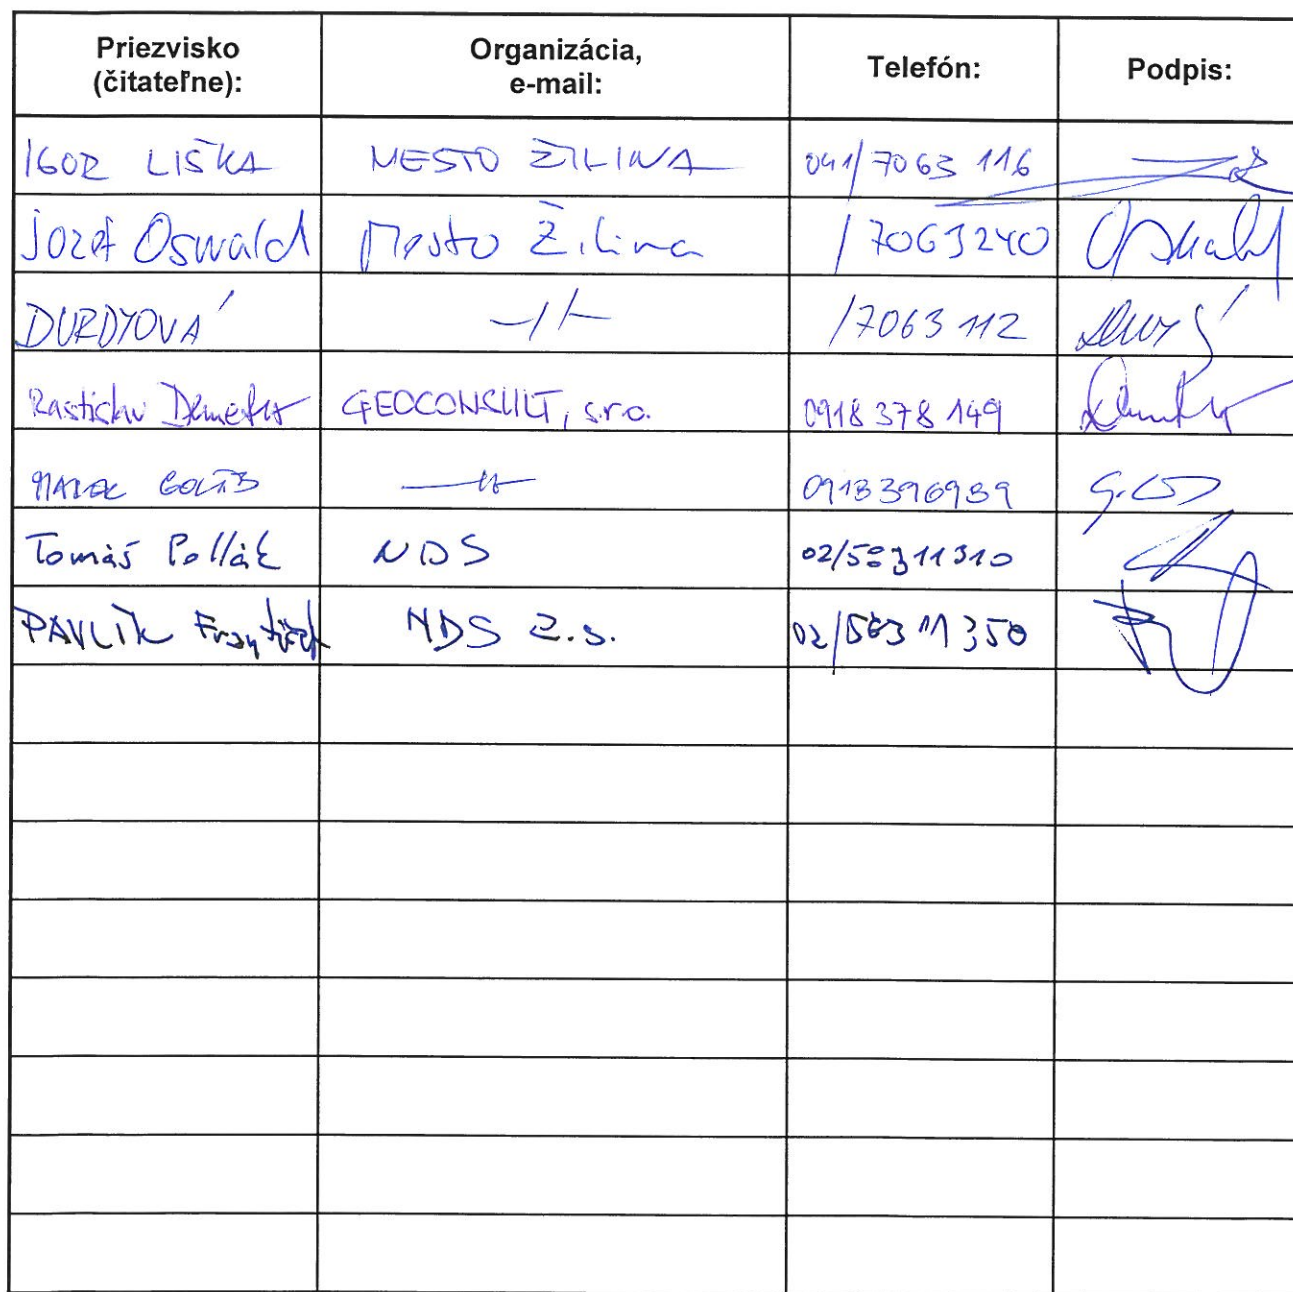 Priezvisko (čitateľne): Organizácia, e-mail: Telefón: Podpis:
IGOR LIŠKA MESTO ŽILINA 041/7063 116
Jozef Oswald Mesto Žilina /7063240
DURDYOVÁ -//- /7063 112
Rastislav Demeter GEOCONSULT, s.r.o. 0918 378 149
MAREK -//-
Tomáš Pollák NDS 02/58311310
PAVLÍK František NDS a.s. 02/58311350